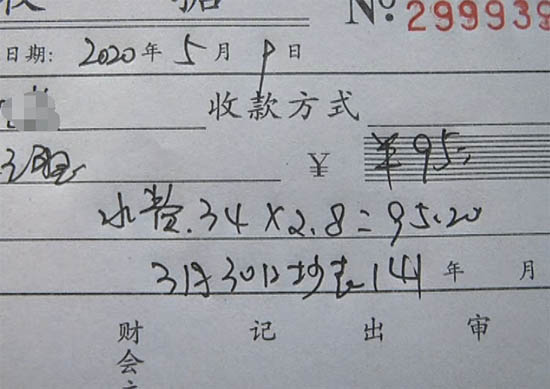 收 据 No. 299939
日期: 2020 年 5 月 9 日
收款方式
¥ ¥95
水费.34×2.8=95.20
3月30日抄表141 年 月
财会 记 出 审